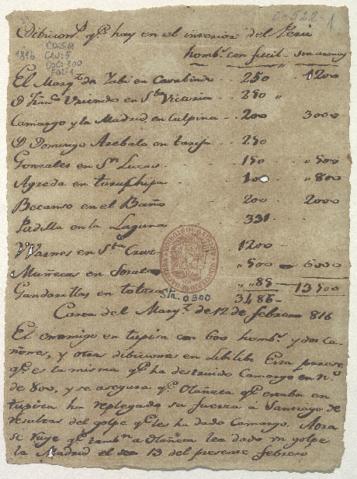 Dibicion.s q.e hay en el inserior del Peru
homb.s con fucil sin armas
El Marq.s de Yabi en Carabindo .. 250 .. 1200
D. Uriondo en S.ta Victoria .. 250 ..
Camargo y la Madrid en Culpina .. 200 3000
D. Domingo Arebala en tarija .. 250
Gonzales en S.n Lucas .. 150 .. 500
Agreda en turuchipa .. 100 .. 800
Becanso en el Baño .. 200 2000
Padilla en la Laguna 331
Warnes en S.ta Cruz .. 1200
Muñecas en Sorata .. 500 6000
Gandarillas en 85 13500
3486
Carta del Marq.s de 12 de febrero 816
El enemigo en tupisa con 600 homb.s y dos Ca-
ñones, y otra dibicion en Libilibi Esta parece
q.e es la misma q.e ha destruido Camargo en n.o
de 800, y se asegura q.e Olañeta q.e estaba en
tupisa ha replegado su fuerza a Santiago de
resultas del golpe q.e les ha dado Camargo. Aora
se ruge q.e tamb.n a Olañeta lea dado un golpe
la Madrid el 13 del presente febrero
1816
Sta. 0300